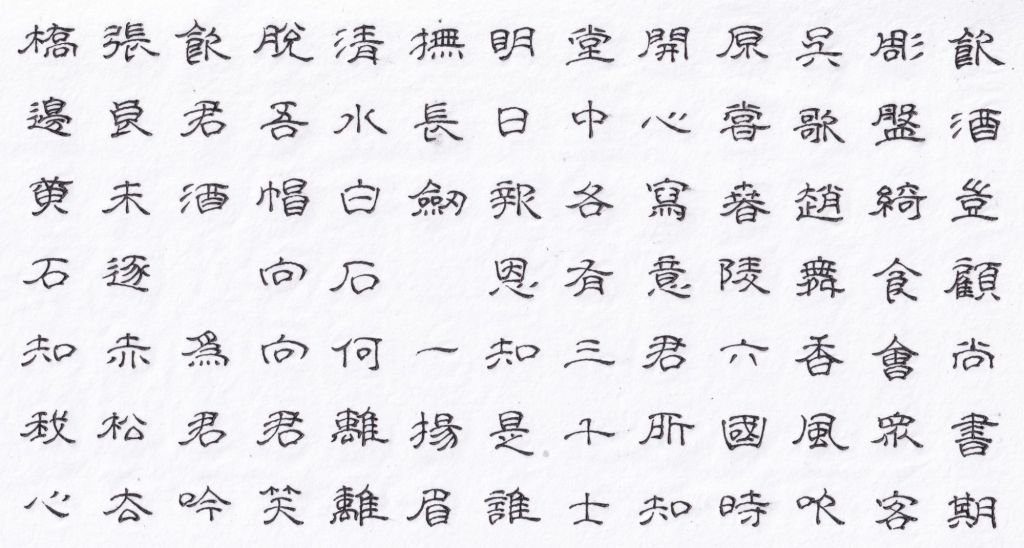 飲酒豈顧尚書期
彫盤綺食會眾客
吳歌趙舞香風吹
原嘗春陵六國時
開心寫意君所知
堂中各有三千士
明日報恩知是誰
撫長劒 一揚眉
清水白石何離離
脫吾帽向向君笑
飲君酒 爲君吟
張良未逐赤松去
橋邊黃石知我心